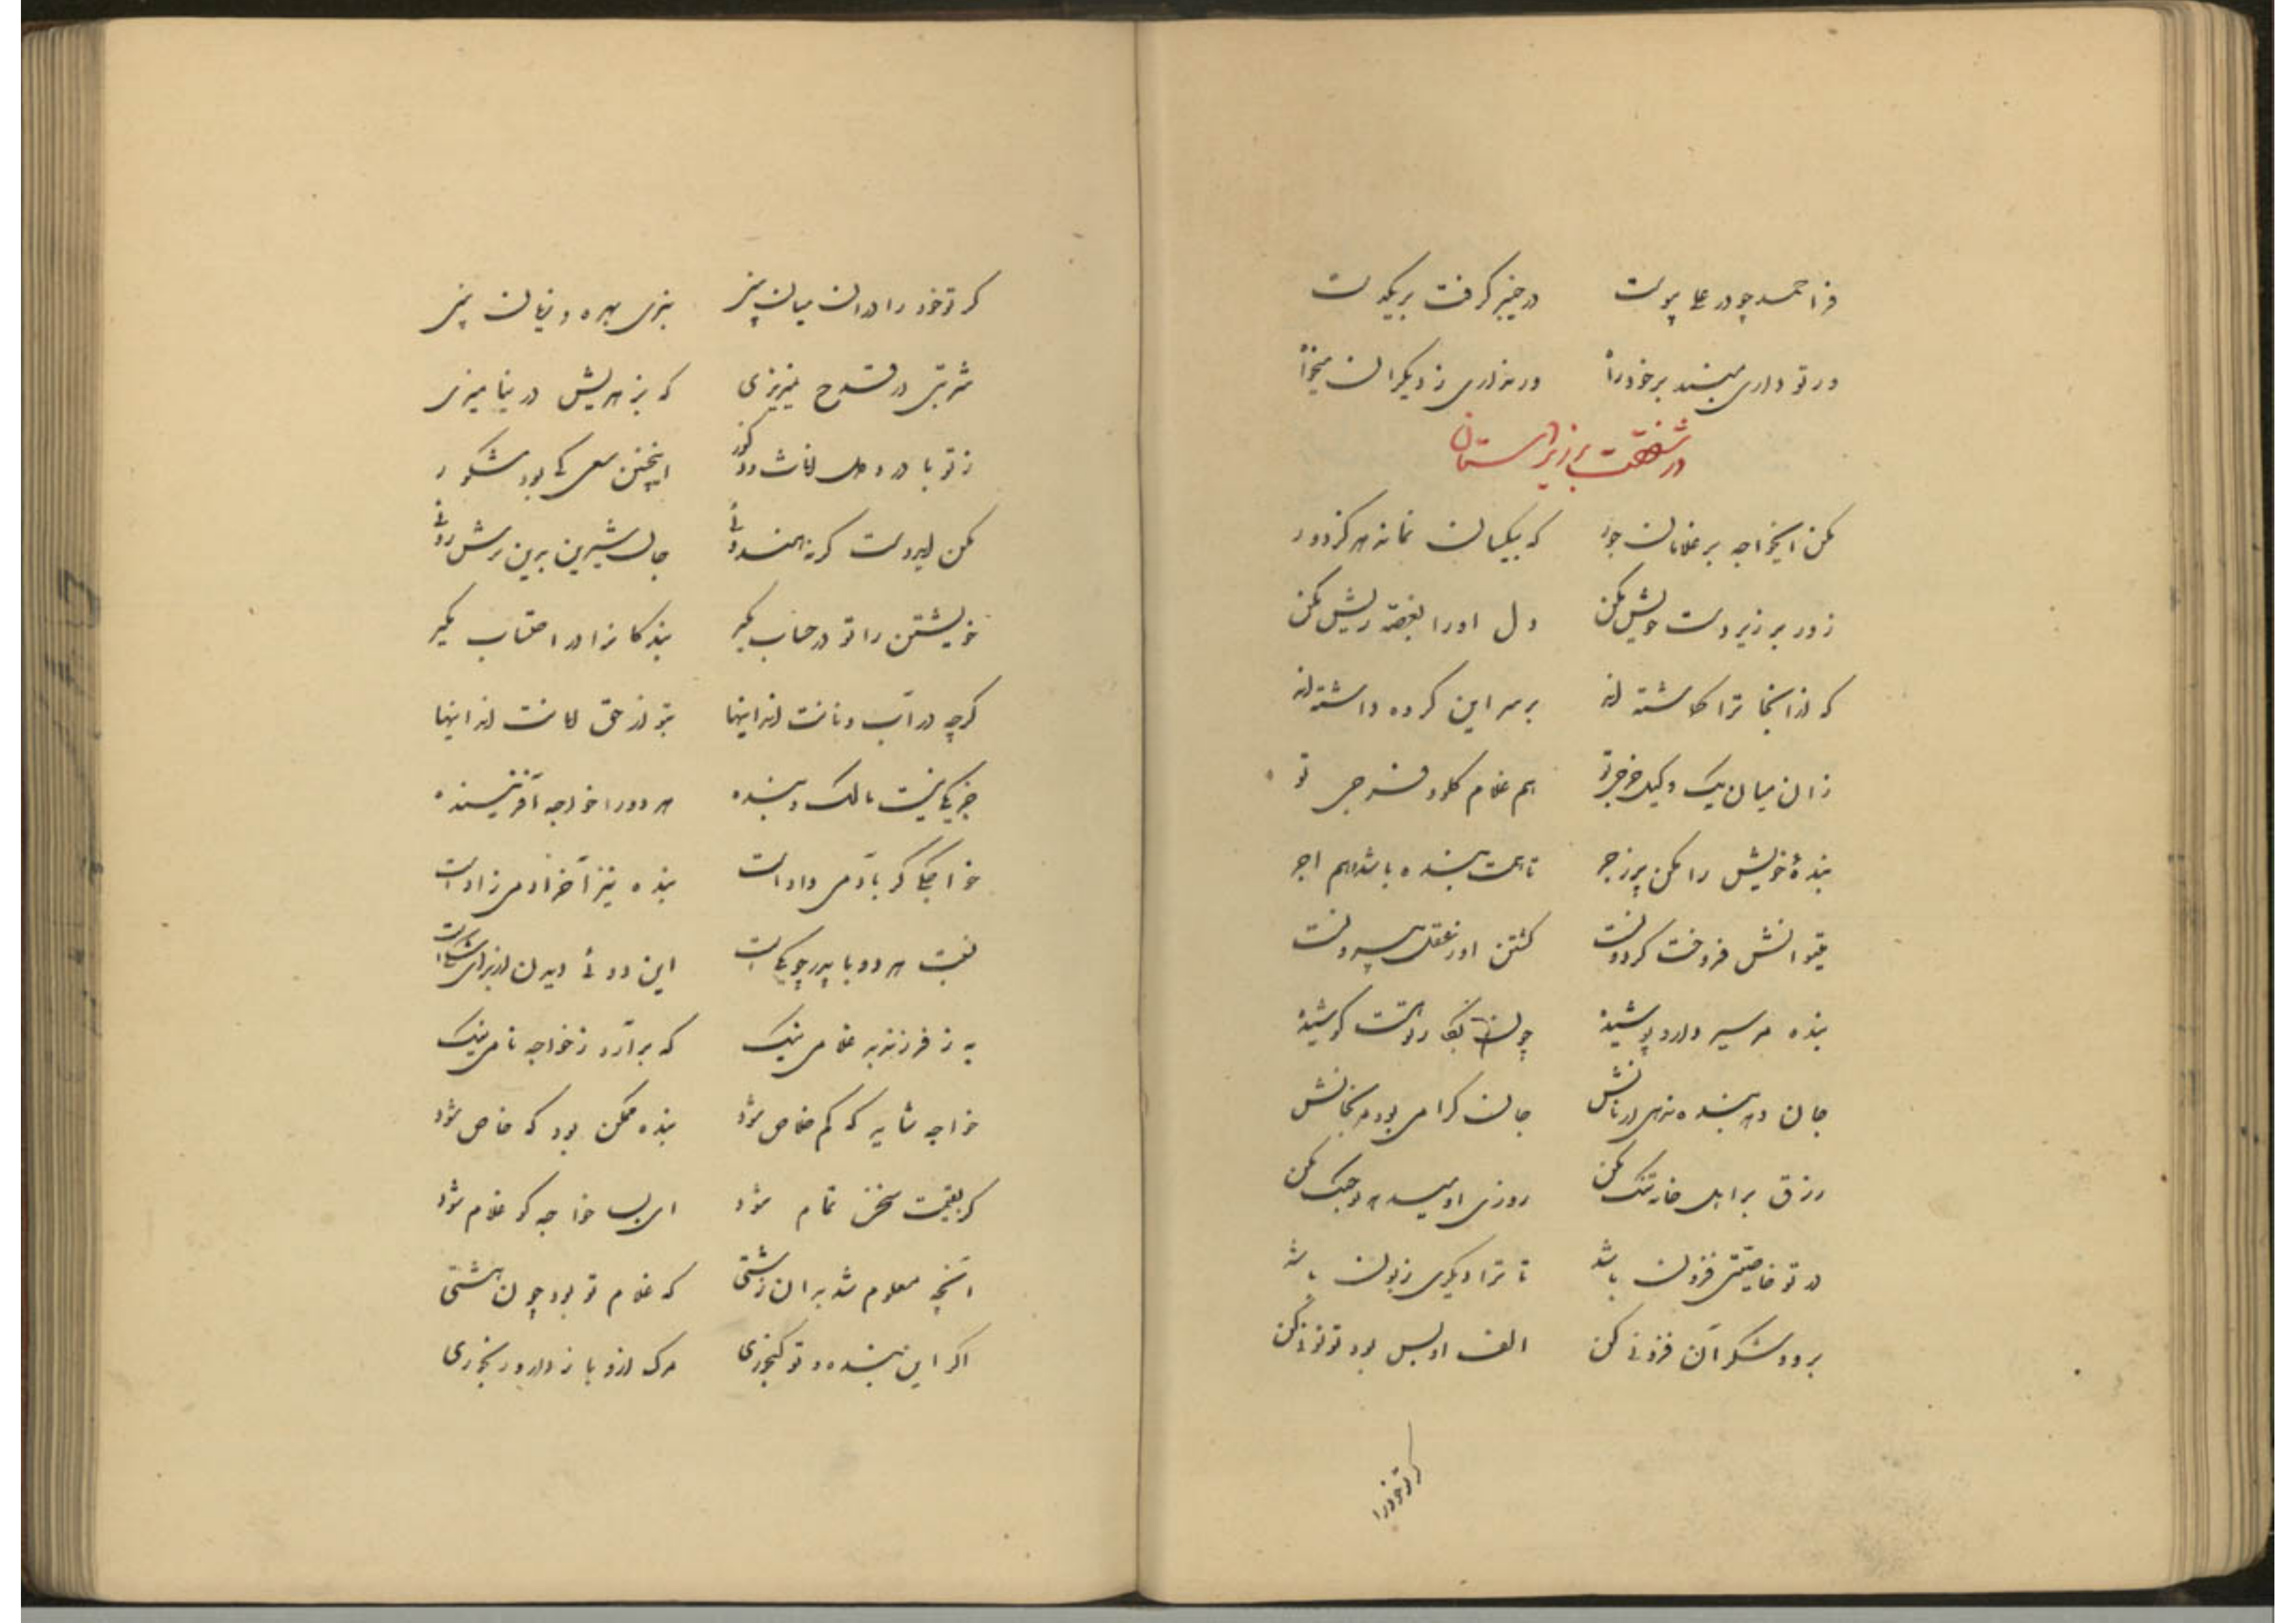 فر احمد چو در علی پیوست در خیبر گرفت بر یکدست
ور تو داری مبند بر خود در ور نداری ز دیگران میخواه
در شفقت بر زیردستان
مکن ایخواجه بر غلامان جور که بیکسان نماند هرگز دور
زور بر زیردست خویش مکن دل او را بغصه ریش مکن
که از آنجا ترا گماشته‌اند بر سر این گروه داشته‌اند
زان میان یک وکیل خرجی تو هم غلام گلو و فرجی تو
بندهٔ خویش را مکن پر زجر تا همت بنده باشد و هم اجر
میتوانش فروخت گر دونست کشتن او ز عقل بیرونست
بنده را سیر دار و پوشیده چون
جان دهد بنده نرهی از نانش جان گرامی بود مرنجانش
رزق بر اهل خانه تنگ مکن روزی او میدهد تو جنگ مکن
در تو خاصیتی فزون باشد تا ترا دیگری زبون باشد
برو و شکر آن فزونی کن الف او بس بود تو نونی کن
گر تو خود را
گر تو خود را در آن میان بینی بنزی بهره و زیان بینی
شربتی در قدح نریزی که بزهریش در نیامیزی
ز تو با درد و دل کانت دور اینچنین سعی کی بود مشکور
مکن ایدوست گر نه هندوئی جان شیرین برین ترش روئی
خویشتن را تو در حساب مگیر بندگانرا در احتساب مگیر
گرچه در آب و نانت اند اینها بتو از حق امانت اند اینها
جز یکی نیست مالک و بنده هر دو را خواجه آفریننده
خواجگی گر بآدمی دادست بنده نیز آخر آدمی زادست
نسبت هر دو با پدر چو یکیست این دوئی دیدن از برای شکیست
به ز فرزند بد غلامی نیک که برآرد ز خواجه نامی نیک
خواجه شاید که کم خاص شود بنده ممکن بود که خاص شود
گر بقیمت سخن تمام شود ای بسا خواجه کو غلام شود
آنچه معلوم شد بدان زشتی که غلام تو بود چون هشتی
اگر این بنده را تو میخری مرگ ازو باز دار و رنجوری